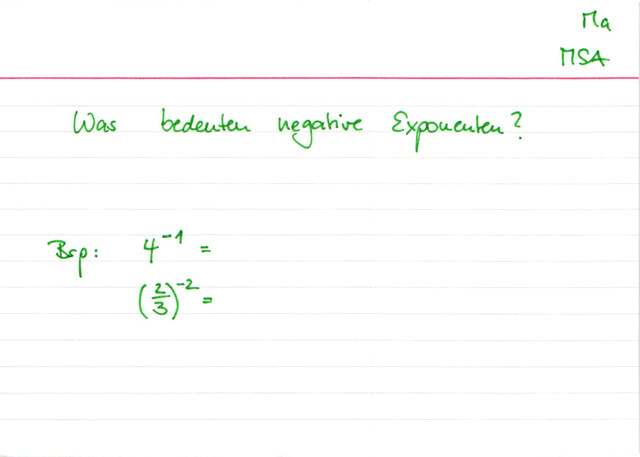 Ma
MSA
Was bedeuten negative Exponenten?
Bsp: 4⁻¹ =
(2/3)⁻² =